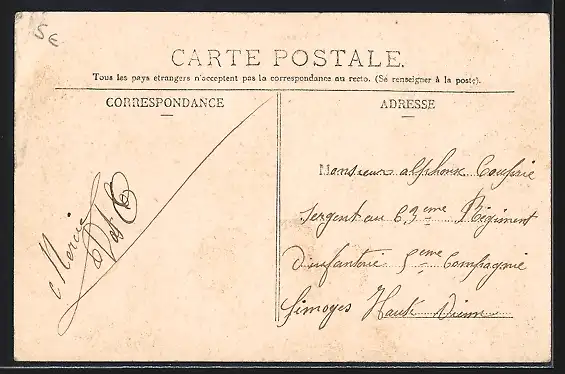 5€
CARTE POSTALE.
Tous les pays étrangers n'acceptent pas la correspondance au recto. (Se renseigner à la poste).
CORRESPONDANCE
ADRESSE
Merci
Monsieur alphonse
Sergent au 63eme Régiment
D'infanterie 5eme Compagnie
Limoges Haute Vienne